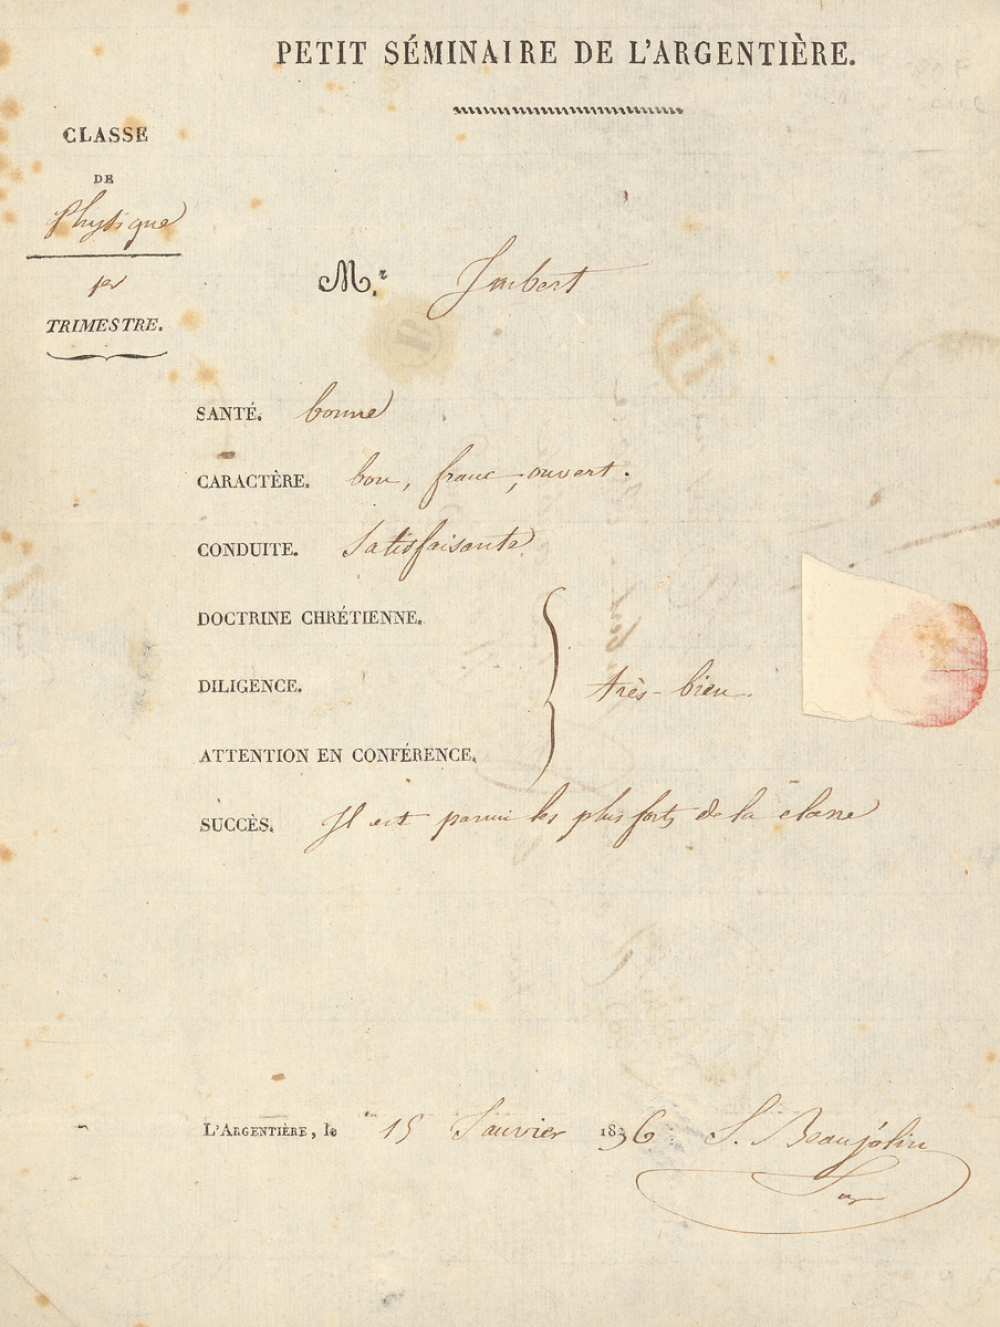 PETIT SÉMINAIRE DE L'ARGENTIÈRE.
CLASSE
DE
Physique
1er
TRIMESTRE.
M.r Imbert
SANTÉ. bonne
CARACTÈRE. bon, franc, ouvert.
CONDUITE. Satisfaisante
DOCTRINE CHRÉTIENNE.
DILIGENCE. très-bien.
ATTENTION EN CONFÉRENCE.
SUCCÈS. Il est parmi les plus forts de la classe
L'ARGENTIÈRE, le 15 Janvier 1836. S. Beaujolin